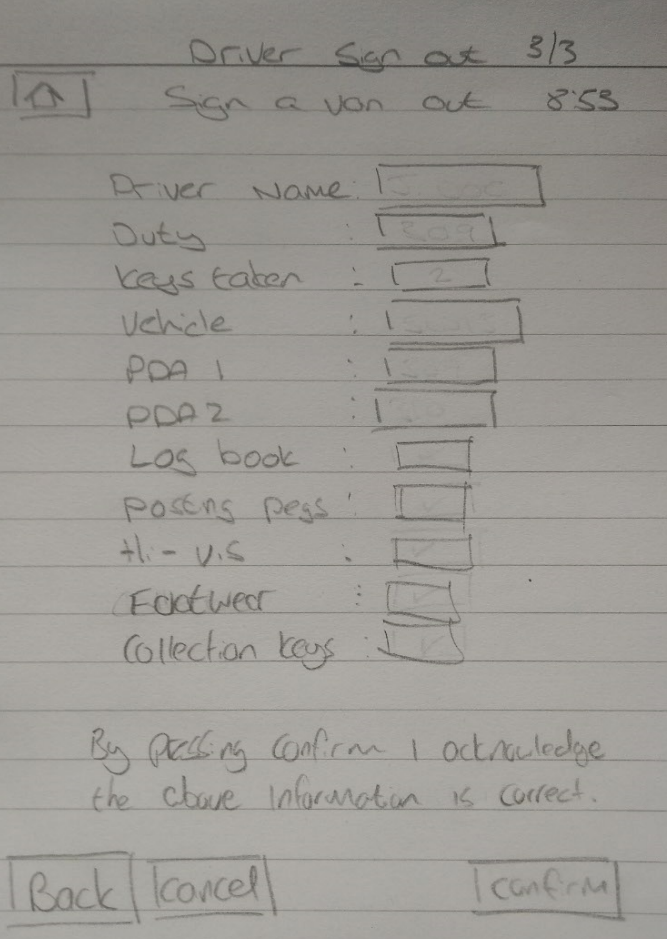 Driver Sign out 3/3
Sign a van out 8:53
Driver Name:
Duty : 309
Keys taken : 2
Vehicle :
PDA 1 :
PDA 2 :
Log book :
Posting pegs :
Hi-Vis :
Footwear :
Collection Keys :
By pressing confirm I acknowledge
the above information is correct.
Back Cancel Confirm